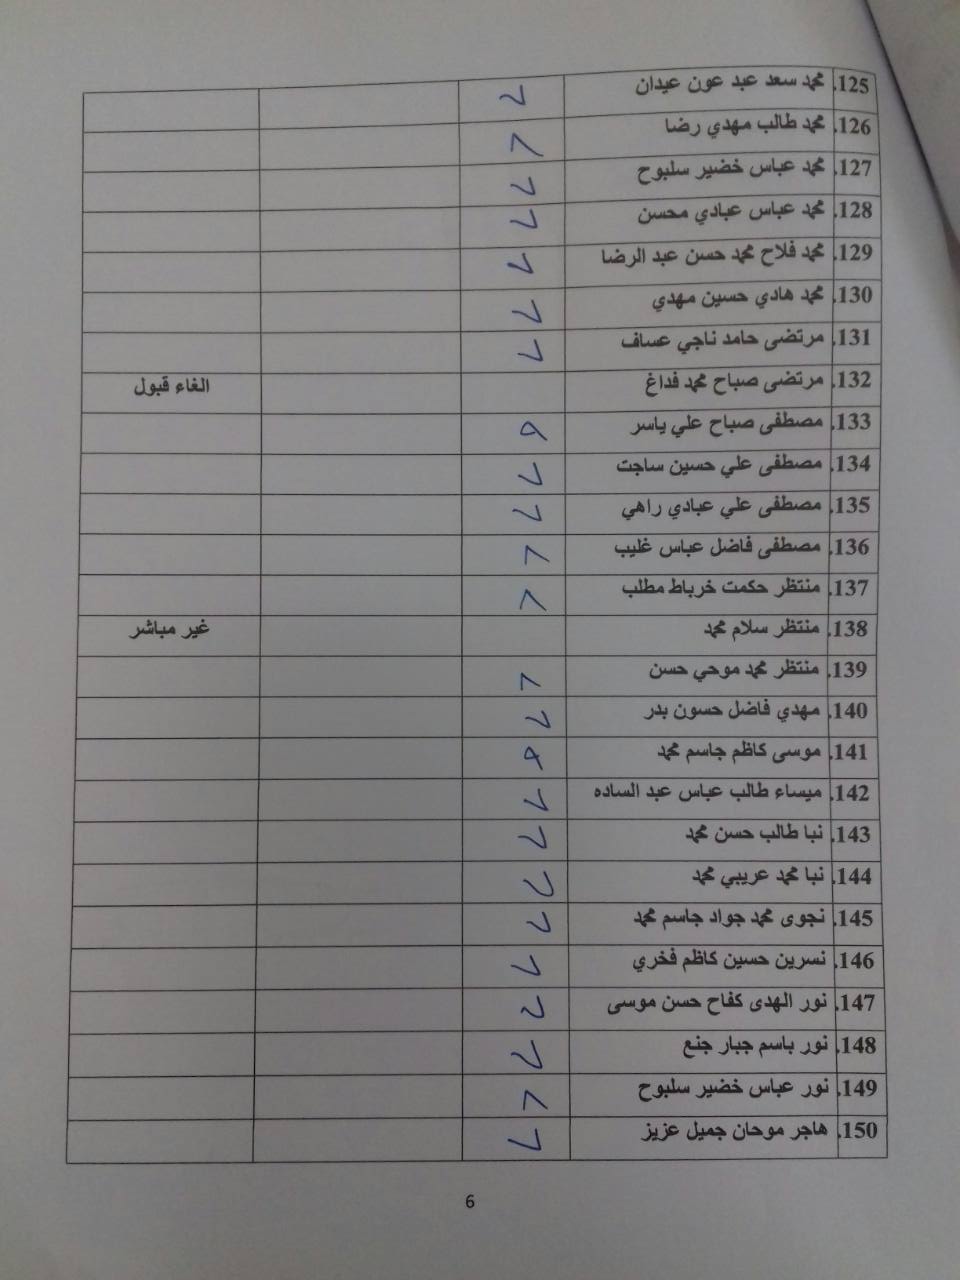 125. محمد سعد عبد عون عيدان
126. محمد طالب مهدي رضا
127. محمد عباس خضير سلبوح
128. محمد عباس عبادي محسن
129. محمد فلاح محمد حسن عبد الرضا
130. محمد هادي حسين مهدي
131. مرتضى حامد ناجي عساف
132. مرتضى صباح محمد فداغ الغاء قبول
133. مصطفى صباح علي ياسر
134. مصطفى علي حسين ساجت
135. مصطفى علي عبادي راهي
136. مصطفى فاضل عباس غليب
137. منتظر حكمت خرباط مطلب
138. منتظر سلام محمد غير مباشر
139. منتظر محمد موحي حسن
140. مهدي فاضل حسون بدر
141. موسى كاظم جاسم محمد
142. ميساء طالب عباس عبد الساده
143. نبا طالب حسن محمد
144. نبا محمد عريبي محمد
145. نجوى محمد جواد جاسم محمد
146. نسرين حسين كاظم فخري
147. نور الهدى كفاح حسن موسى
148. نور باسم جبار جنع
149. نور عباس خضير سلبوح
150. هاجر موحان جميل عزيز
6